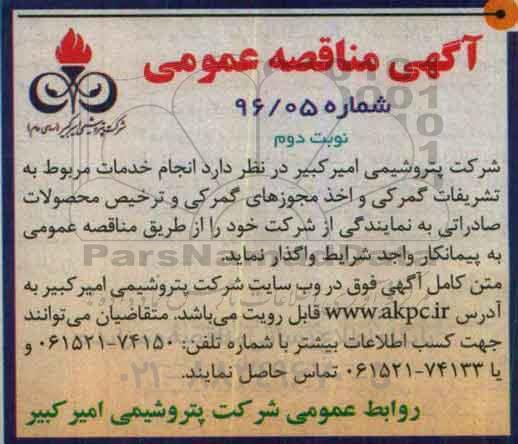 آگهی مناقصه عمومی
شماره ۹۶/۰۵
نوبت دوم
شرکت پتروشیمی امیرکبیر (سهامی عام)
شرکت پتروشیمی امیرکبیر در نظر دارد انجام خدمات مربوط به
تشریفات گمرکی و اخذ مجوزهای گمرکی و ترخیص محصولات
صادراتی به نمایندگی از شرکت خود را از طریق مناقصه عمومی
به پیمانکار واجد شرایط واگذار نماید.
متن کامل آگهی فوق در وب سایت شرکت پتروشیمی امیرکبیر به
آدرس www.akpc.ir قابل رویت می‌باشد. متقاضیان می‌توانند
جهت کسب اطلاعات بیشتر با شماره تلفن: ۷۴۱۵۰-۰۶۱۵۲۱ و
یا ۷۴۱۳۳-۰۶۱۵۲۱ تماس حاصل نمایند.
روابط عمومی شرکت پتروشیمی امیرکبیر